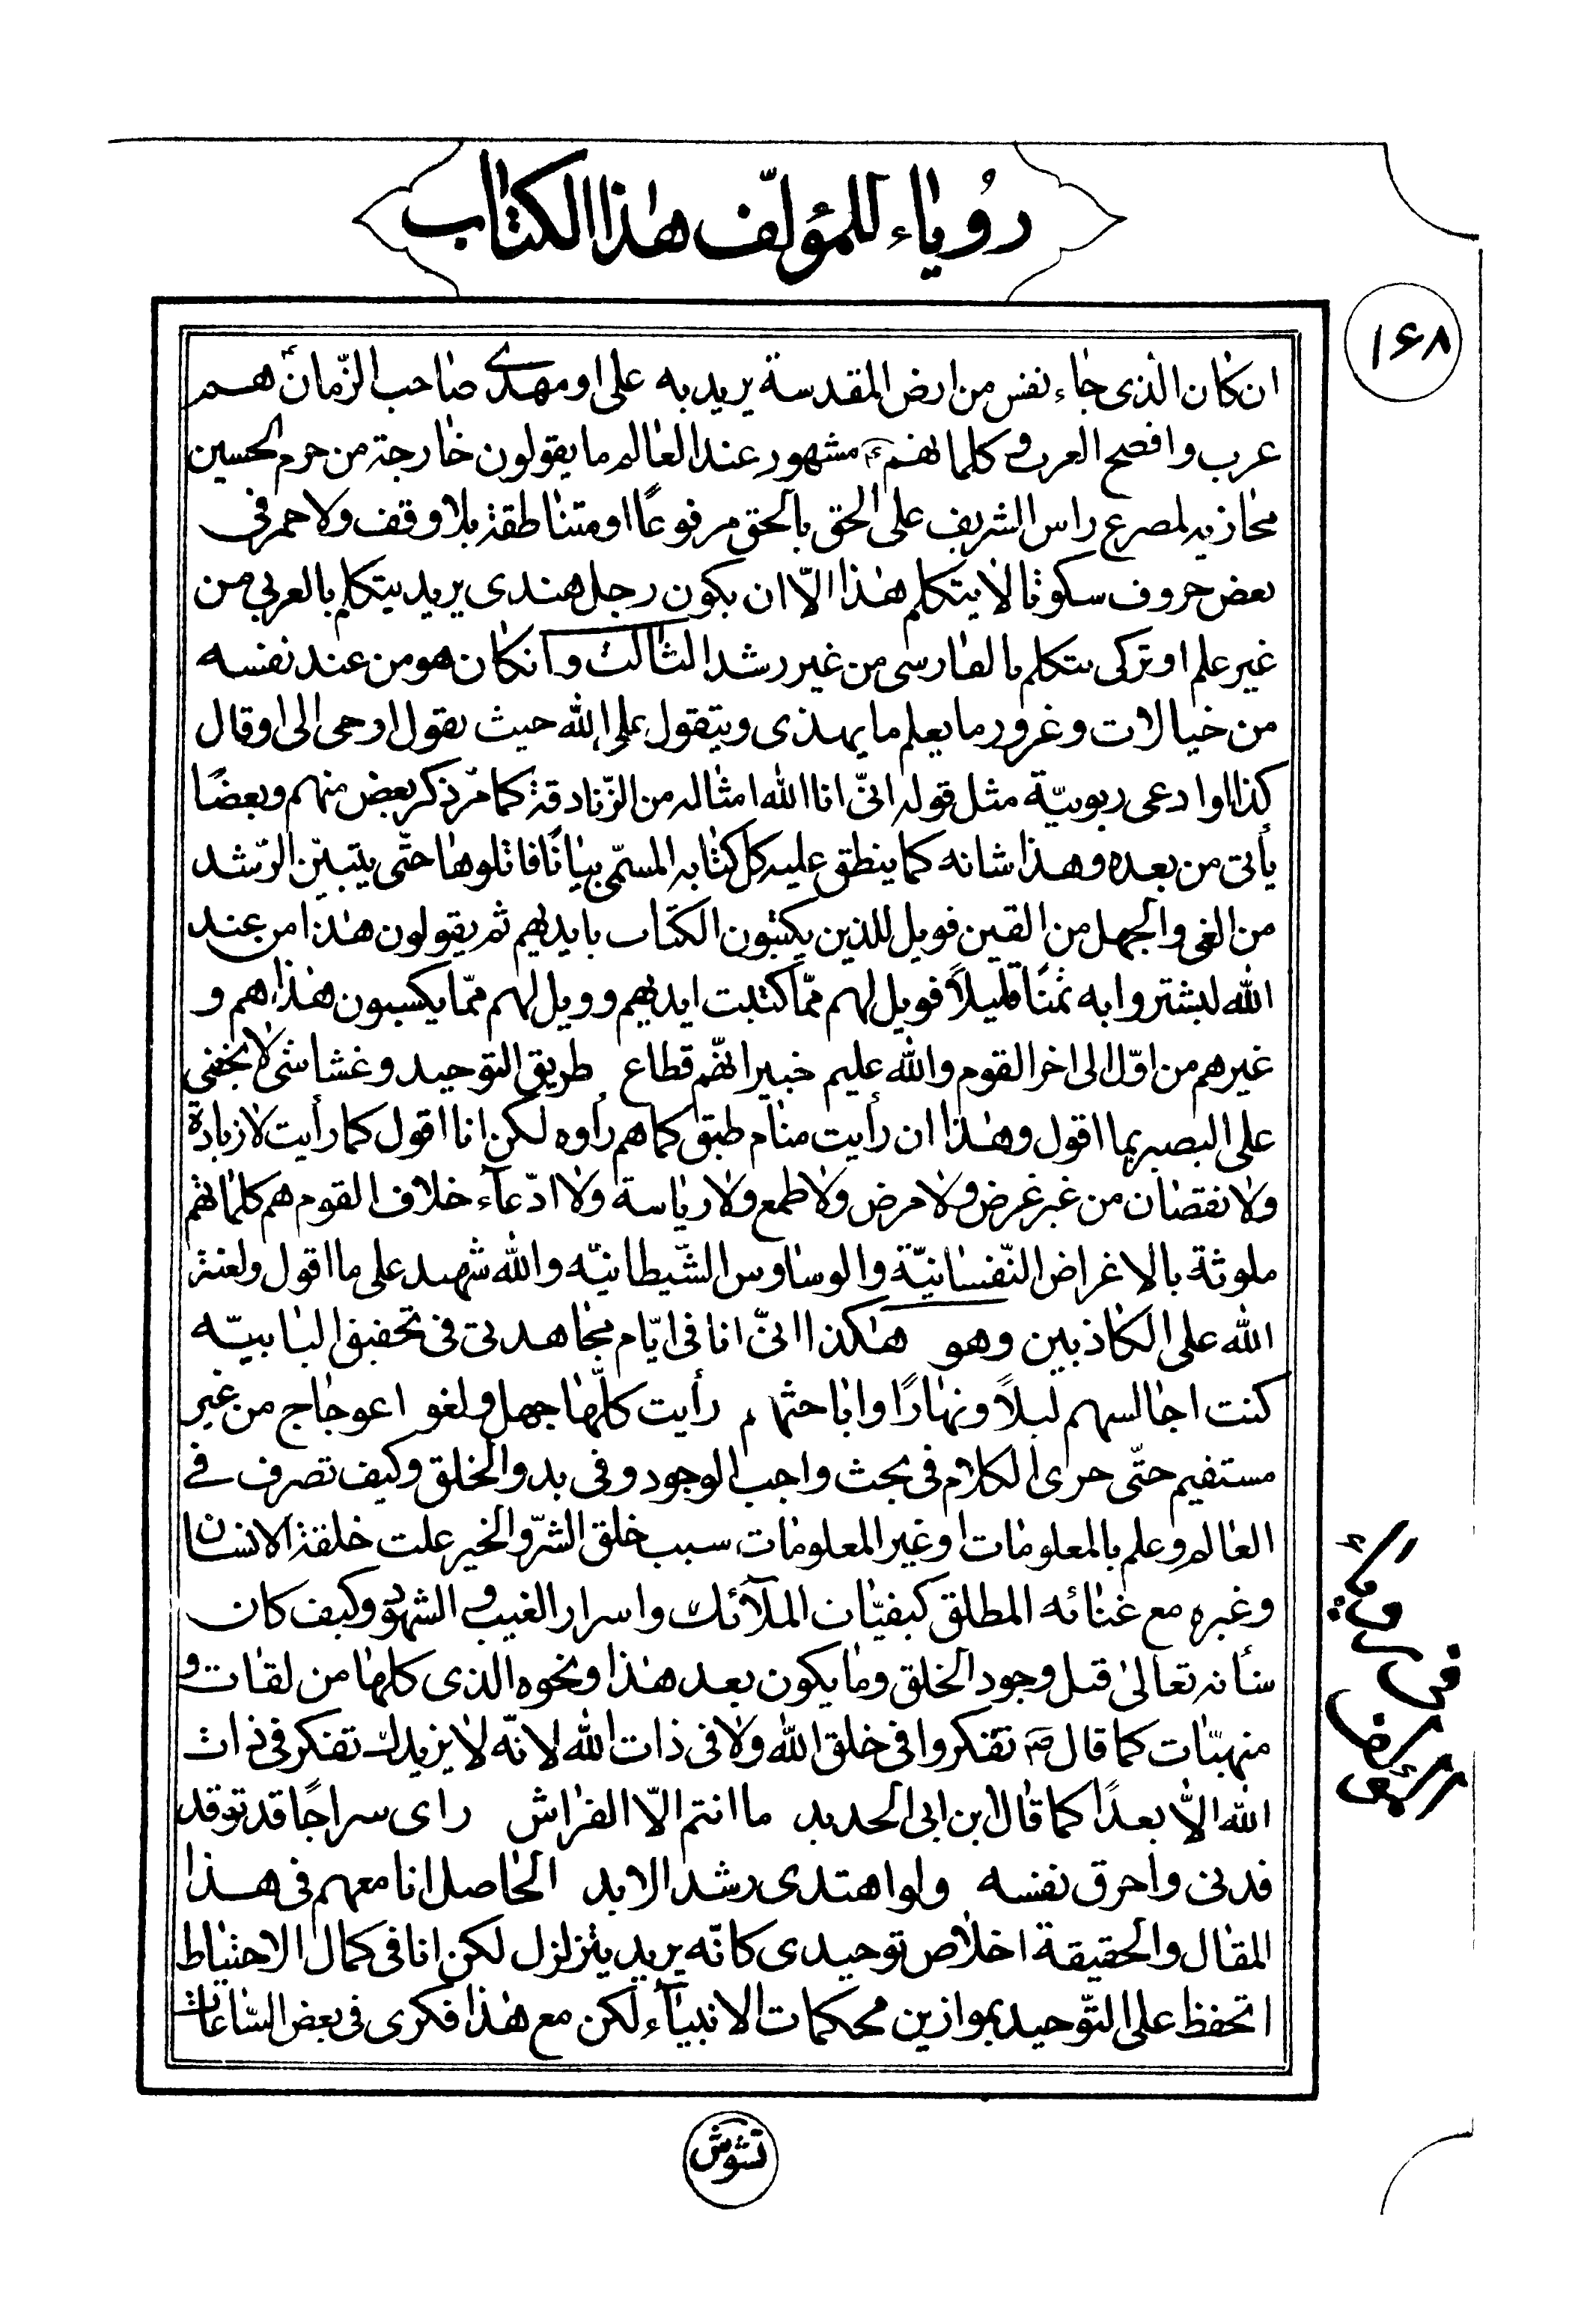 رُویٰاء للمؤلّف هٰذا الکتٰاب
۱۶۸
ان کٰان الذی جٰاء نفس من ارض المقدسة یرید به علی او مهدی صٰاحب الزّمان هم
عرب وافصح العرب و کلماتهم مشهور عند العٰالم ما یقولون خٰارجة من حرم الحسین
محٰازیه لمصرع راس الشریف علی الحق بالحق مرفوعًا او متناطقة بلا وقف ولا حمر فی
بعض حروف سکوتا لا یتکلم هٰذا الّا ان یکون رجل هندی یرید یتکلم بالعربی من
غیر علم او ترکی یتکلم بالفارسی من غیر رشد الثالث وانکٰان هو من عند نفسه
من خیالات وغرور ما یعلم ما یهذی ویتقول علی الله حیث یقول اوحی الی او قال
کذا او ادعی ربوبیّة مثل قوله انّی انا الله امثاله من الزّنادقة کما مرّ ذکر بعض منهم وبعضًا
یأتی من بعده وهذا شانه کما ینطق علیه کل کتابه المسمّی بیٰانًا فاتلوها حتّی یتبیّن الرّشد
من الغی والجهل من القین فویل للذین یکتبون الکتاب بایدیهم ثم یقولون هٰذا من عند
الله لیشتروا به ثمنًا قلیلاً فویل لهم ممّا کتبت ایدیهم وویل لهم ممّا یکسبون هٰذا هم و
غیرهم من اوّل الی اخر القوم والله علیم خبیر انهّم قطاع طریق التوحید وغشاشی لا یخفی
علی البصیر بما اقول وهٰذا ان رأیت منٰام طبق کما هم رأوه لکن انا اقول کما رأیت لا زیادة
ولا نقصٰان من غیر غرض ولا مرض ولا طمع ولا ریٰاسة ولا ادّعآء خلاف القوم هم کلماتهم
ملوثة بالاغراض النّفسانیّة والوساوس الشّیطانیّه والله شهید علی ما اقول ولعنة
الله علی الکاذبین وهو هٰکذا انّی انا فی ایّام مجٰاهدتی فی تحقیق البابیّه
کنت اجٰالسهم لیلاً ونهٰارًا واباحثهم رأیت کلّها جهل ولغو اعوجٰاج من غیر
مستقیم حتّی جری الکلام فی بحث واجب الوجود وفی بدو الخلق وکیف تصرف فی
العٰالم وعلم بالمعلومٰات او غیر المعلومٰات سبب خلق الشرّ والخیر علت خلقة الانسان
وغیره مع غنائه المطلق کیفیّات الملآئک واسرار الغیب و الشهود وکیف کان
شأنه تعالیٰ قبل وجود الخلق ومٰا یکون بعد هٰذا ونحوه الذی کلهٰا من لقات و
منهیّات کما قال ص تفکروا فی خلق الله ولا فی ذات الله لانّه لا یزیدک تفکر فی ذات
الله الّا بعدًا کما قٰال ابن ابی الحدید ما انتم الّا الفرٰاش رای سراجًا قد توقد
فدنی واحرق نفسه ولو اهتدی رشد الابد الحٰاصل انا معهم فی هذا
المقال والحقیقة اخلاص توحیدی کانّه یرید یتزلزل لکن انا فی کمال الاحتیاط
اتحفظ علی التّوحید بموازین محکمات الانبیآء لکن مع هٰذا فکری فی بعض السّاعات
تشوش